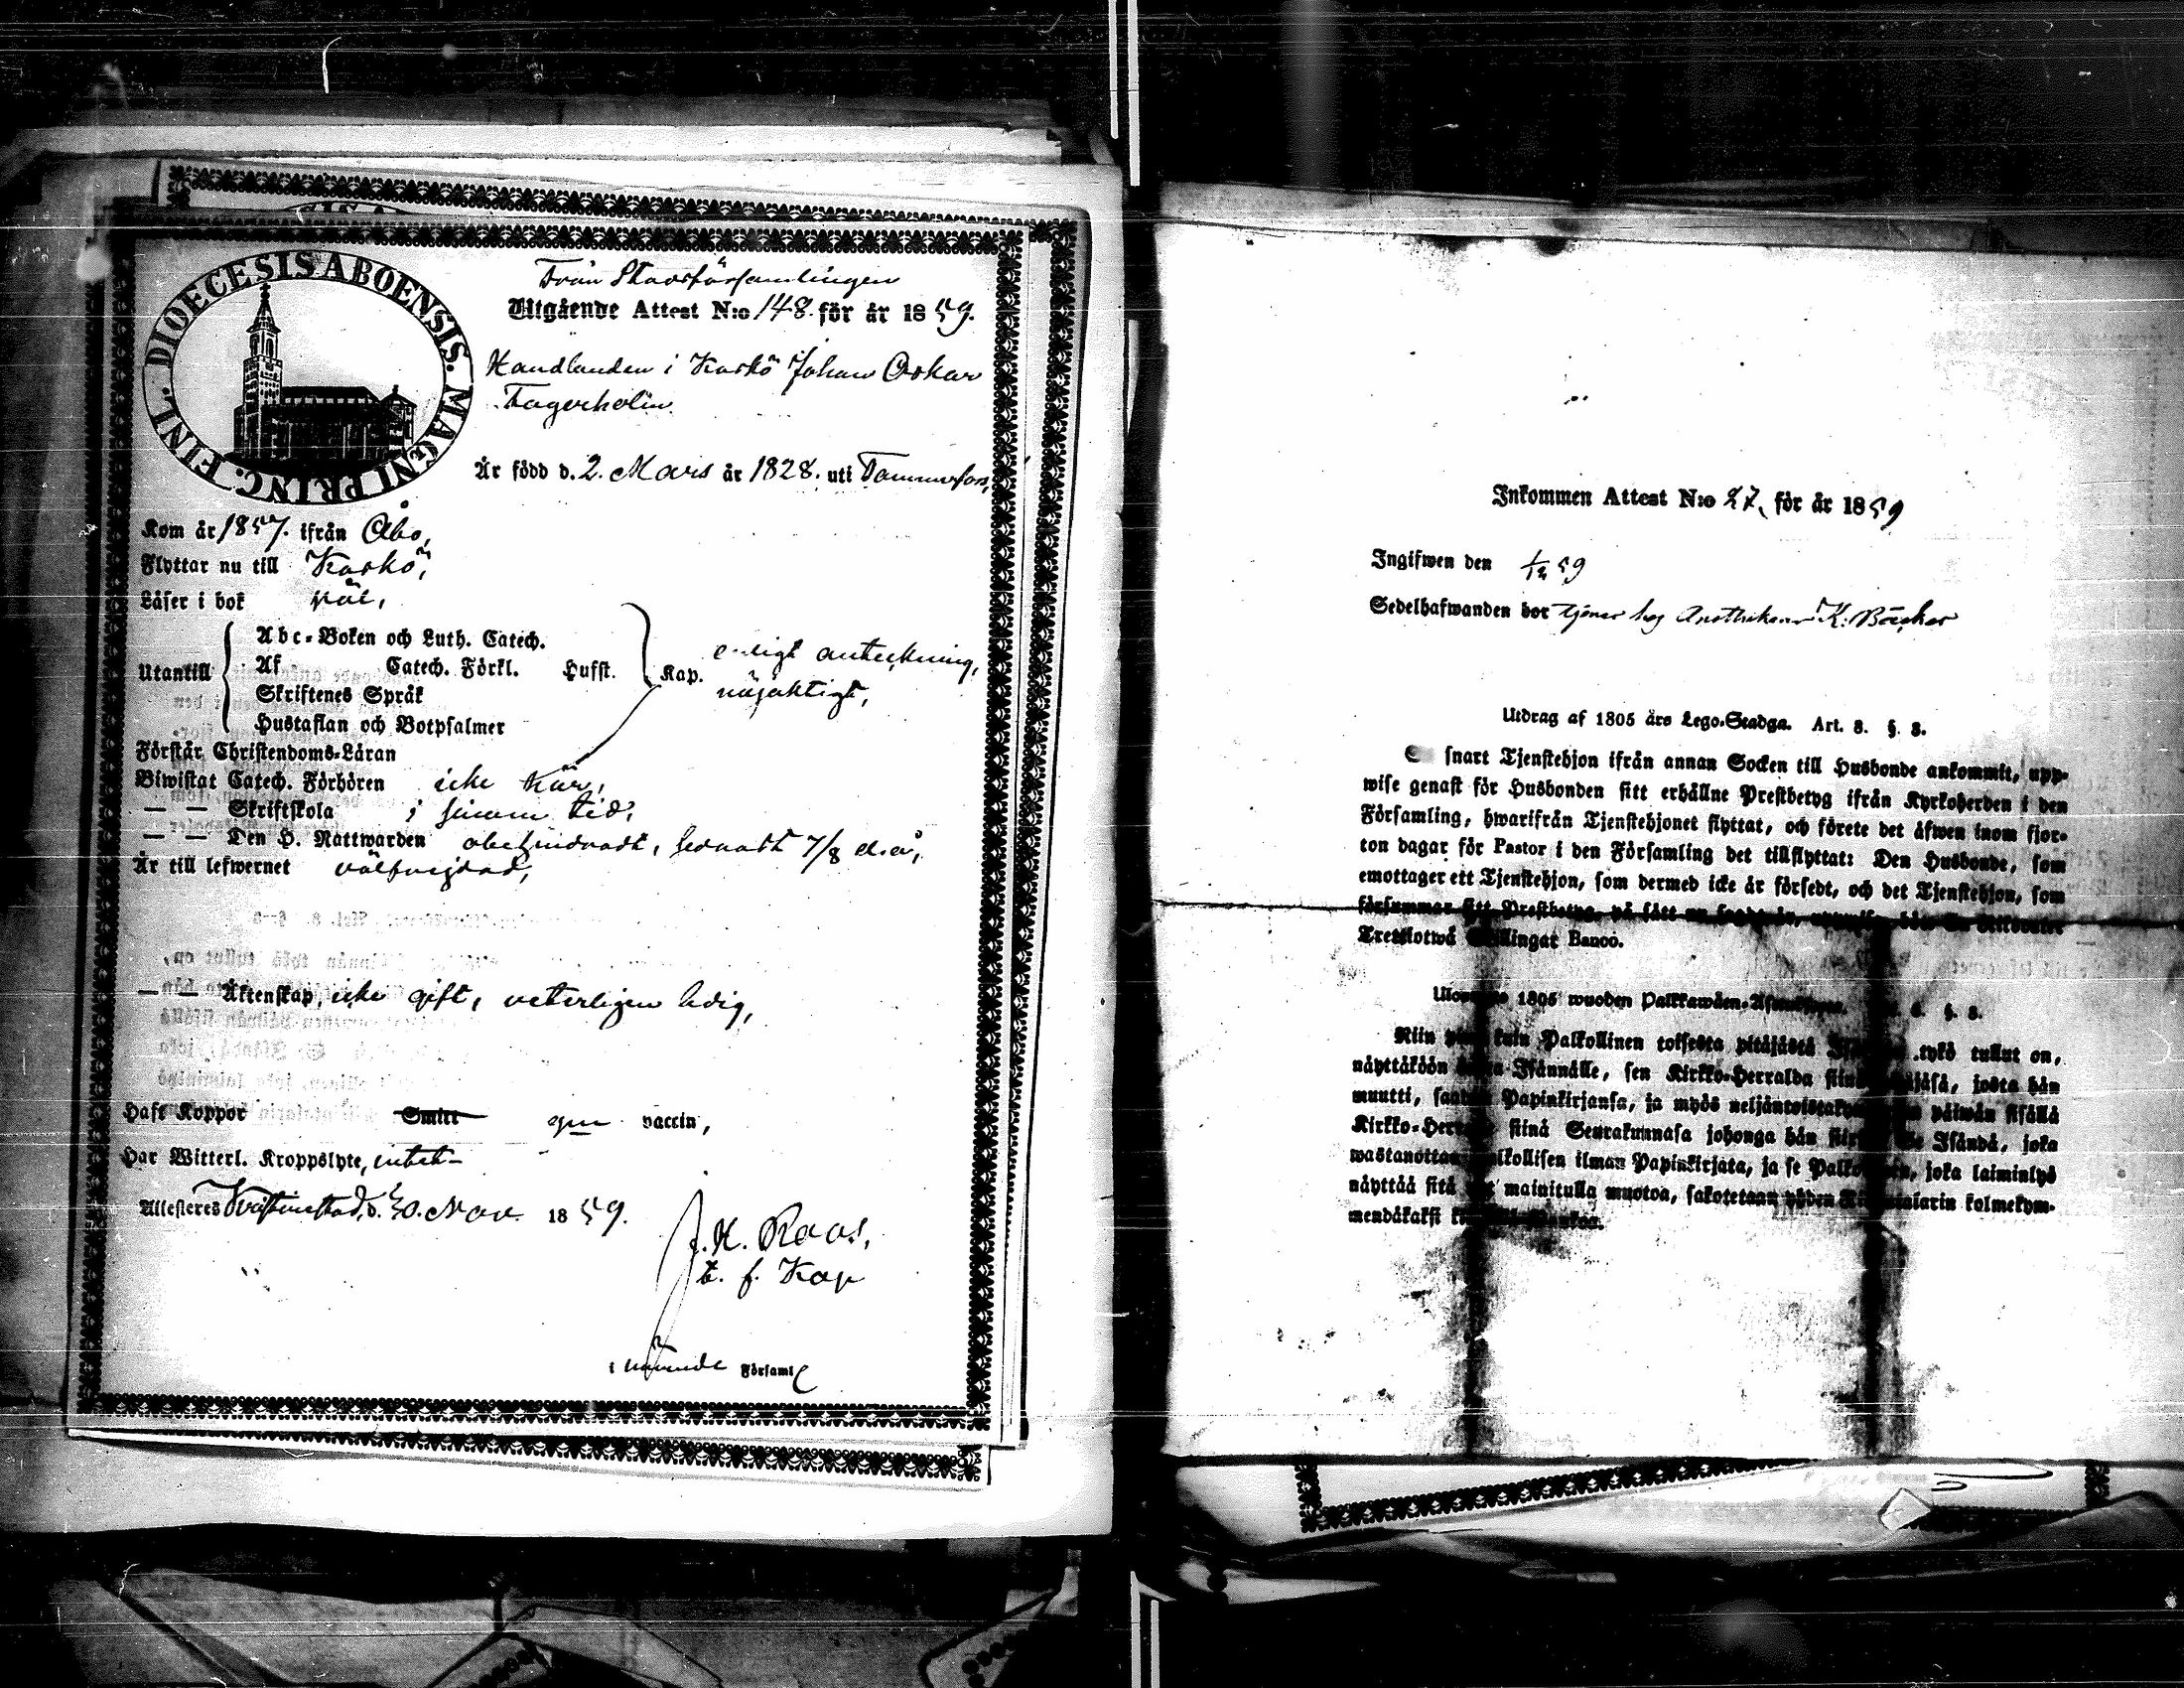 DIOECESIS ABOENSIS. MAGNI PRINC. FINL.
Från Stadsförsamlingen
Utgående Attest N:o 148. för år 1859.
Handlanden i Kaskö Johan Oskar
Fagerholm
Är född d. 2. Mars år 1828. uti Tammerfors,
Kom år 1857. ifrån Åbo,
Flyttar nu till Kaskö,
Läser i bok väl,
Abc-Boken och Luth. Catech.
Utantill Af Catech. Förkl. Hufst. Kap. enligt anteckning,
Skriftenes Språk nöjaktigt,
Hustaflan och Botpsalmer
Förstår Christendoms-Läran
Biwistat Catech. Förhören icke här,
— — Skriftskola i sinom tid,
— — Den H. Nattwarden obehindradt, senast 7/8 d. å,
Är till lefwernet välfrejdad,
— — Äktenskap, icke gift, veterligen ledig,
Haft Koppor Smitt egen vaccin,
Har Witterl. Kroppslyte, intet
Attesteres Kristinestad, d. 30. Nov. 1859.
J. K. Roos,
t. f. Kap
i nämnde Församl
Inkommen Attest N:o 27, för år 1859
Ingifwen den 1/12 59
Sedelhafwanden bor tjenar hos Apothekare K. Bäcker
Utdrag af 1805 års Lego-Stadga. Art. 8. §. 8.
snart Tjenstehjon ifrån annan Socken till Husbonde ankommit, upp-
wise genast för Husbonden sitt erhållne Prestbetyg ifrån Kyrkoherden i den
Församling, hwarifrån Tjenstehjonet flyttat, och förete det äfwen inom fjor-
ton dagar för Pastor i den Församling det tillflyttat: Den Husbonde, som
emottager ett Tjenstehjon, som dermed icke är försedt, och det Tjenstehjon, som
försummar sitt Prestbetyg, på sätt
Trettiotwå Banco.
1805 wuoden Palkkawäen- §. 8.
Niin kuin Palkollinen toisesta pitäjästä tykö tullut on,
näyttäköön Isännälle, sen Kirkko-Herralda josta hän
muutti, Papinkirjansa, ja myös päiwän sisällä
Kirkko- siinä Seurakunnasa johonga hän Isändä, joka
wastanottaa ilman Papinkirjata, ja se joka laiminlyö
näyttää sitä mainitulla muotoa, sakotetaan yhden kolmekym-
mendäkaksi